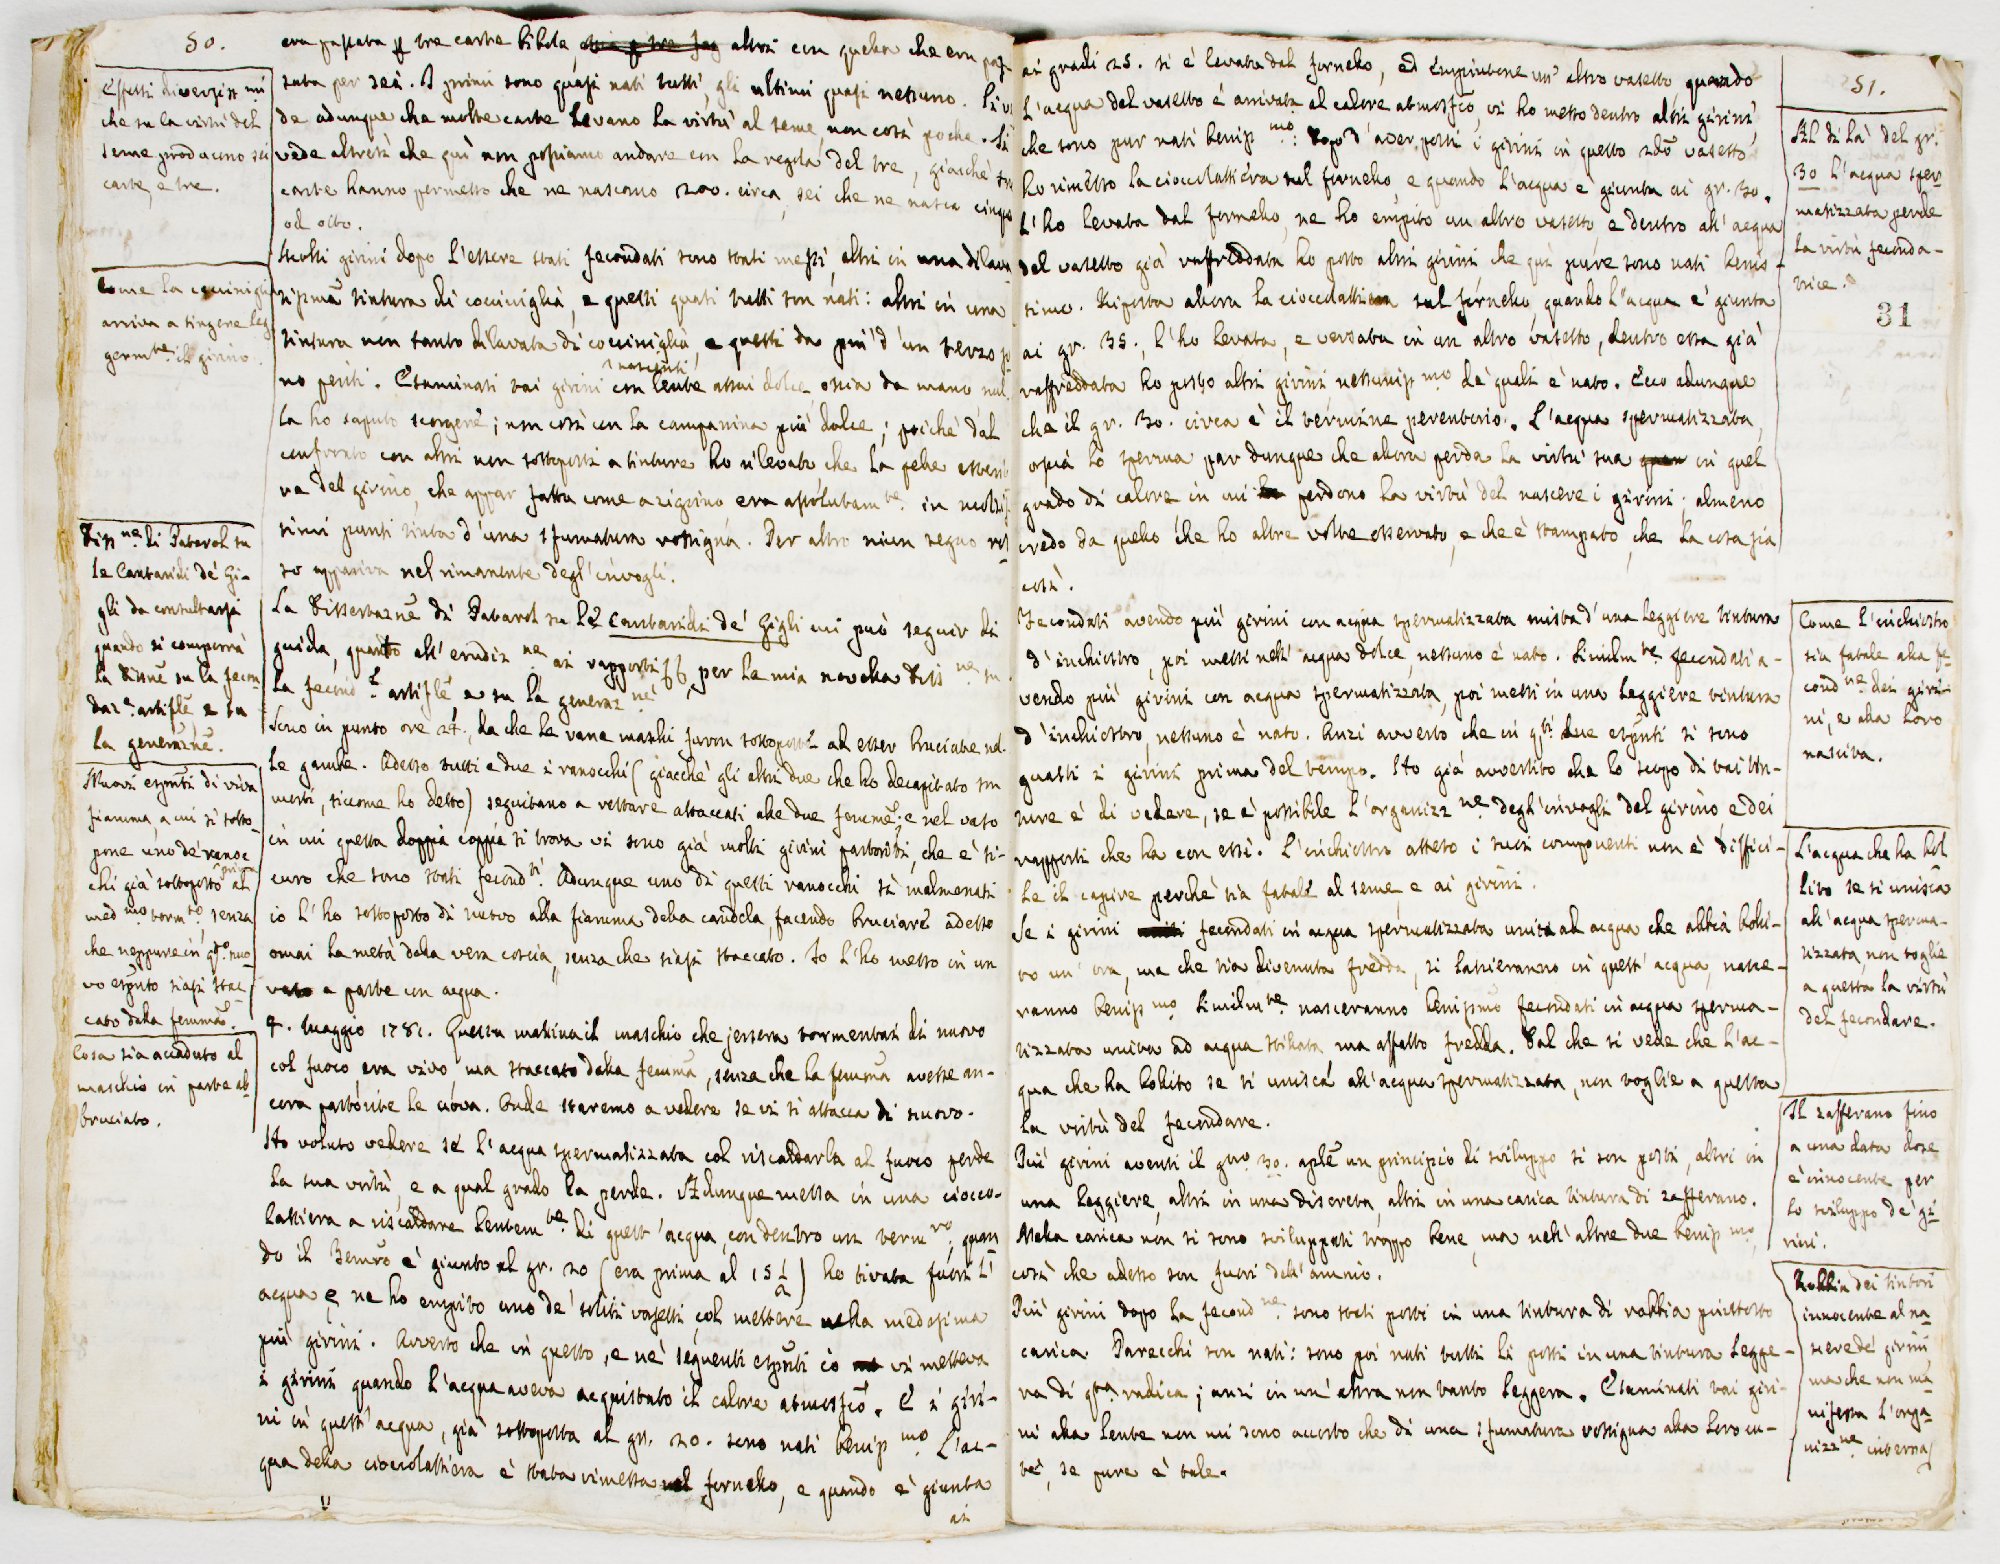 50.
era passata p tre carte bibole, altri con quella che era pas
sata per sei. I primi sono quasi nati tutti, gli ultimi quasi nessuno. Si ve
de adunque che molte carte levano la virtù al seme, non così poche. Si
vede altresì che quì non possiamo andare con la regola del tre, giacchè tre
carte hanno permesso che ne nascono 200. circa, sei che ne nasca cinque
od otto.
Molti girini dopo l'essere stati fecondati sono stati messi, altri in una dilava
tissima tintura di cocciniglia, e questi quasi tutti son nati: altri in una
tintura non tanto dilavata di cocciniglia, e questi da più d'un terzo so
no periti. Esaminati tai girini nascenti con lente assai dolce, ossia da mano nul
la ho saputo scorgere; non così con la campanina più dolce; poichè dal
confronto con altri non sottoposti a tinture ho rilevato che la pelle esteri
re del girino, che appar fatta come a zigrino era assolutam.te in moltis
simi punti tinta d'una sfumatura rossigna. Per altro niun segno ros
so appariva nel rimanente degl'invogli.
La Dissertazne di Patarol su le Cantaridi de' Gigli mi può seguir di
guida, quanto all'erudiz.ne ai rapporti ff, per la mia novella Diss.ne su
la fecond.e artifle, e su la generaz.ne
Sono in punto ore 24., da che le rane maschi furon sottoposte ad esser bruciate nel
le gambe. Adesso tutti e due i ranocchi (giacchè gli altri due che ho decapitato son
morti, siccome ho detto) seguitano a restare attaccati alle due femme; e nel vaso
in cui questa doppia coppia si trova vi sono già molti girini partoriti, che è si-
curo che sono stati fecond.ti. Adunque uno di questi ranocchi sì malmenati
io l'ho sottoposto di nuovo alla fiamma della candela, facendo bruciare adesso
omai la metà della vera coscia, senza che siasi staccato. Io l'ho messo in un
vaso a parte con acqua.
4. Maggio 1781. Questa mattina il maschio che jersera tormentai di nuovo
col fuoco era vivo ma staccato dalla femma, senza che la femma avesse an-
cora partorite le uova. Onde staremo a vedere se vi si attacca di nuovo.
Ho voluto vedere se l'acqua spermatizzata col riscaldarla al fuoco perde
la sua virtù, e a qual grado la perde. Adunque messa in una ciocco-
lattiera a riscaldare lentem.te di quest'acqua, con dentro un term.ro, quan
do il Termro è giunto al gr. 20 (era prima al 15 1/2) ho tirata fuori l'
acqua e ne ho empito uno de' soliti vasetti col mettere nella medesima
più girini. Avverto che in questo, e ne' seguenti espnti io vi metteva
i girini quando l'acqua aveva acquistato il calore atmosfco. E i giri-
ni in quest'acqua, già sottoposta al gr. 20. sono nati beniss.mo L'ac-
qua della cioccolattiera è stata rimessa nel fornello, e quando è giunta
ai
Effetti diversiss.mi
che su la virtù del
seme producono sei
carte, e tre.
Come la cocciniglia
arriva a tingere leg
germ.te il girino.
Diss.ne di Patarol su
le Cantaridi de' Gi-
gli da consultarsi
quando si comporrà
la Dissne su la fecon-
daz.e artifle, e su
la generazne.
Nuovi espnti di viva
fiamma, a cui si sotto-
pone uno de' ranoc
chi già sottoposto prima al
med.mo torm.to, senza
che neppure in q.to nuo
vo espnto siasi stac-
cato dalla femma.
Cosa sia accaduto al
maschio in parte ab
bruciato.
ai gradi 25. si è levata dal fornello, ed empiutone un altro vasetto quando
l'acqua del vasetto è arrivata al calore atmosfco, vi ho messo dentro altri girini
che sono pur nati beniss.mo: Dopo d'aver posti i girini in questo 2do vasetto
ho rimesso la cioccolattiera sul fornello, e quando l'acqua è giunta ai gr. 30.
l'ho levata dal fornello, ne ho empito un altro vasetto, e dentro all'acqua
del vasetto già raffreddata ho posto altri girini che quì pure sono nati benis-
simo. Riposta allora la cioccolattiera sul fornello, quando l'acqua è giunta
ai gr. 35., l'ho levata, e versata in un altro vasetto, dentro essa già
raffreddata ho posto altri girini nessuniss.mo de' quali è nato. Ecco adunque
che il gr. 30. circa è il termine perentorio. L'acqua spermatizzata,
ossia lo sperma par dunque che allora perda la virtù sua in quel
grado di calore in cui perdono la virtù del nascere i girini; almeno
credo da quello che ho altre volte osservato, e che è stampato, che la cosa sia
così.
Fecondati avendo più girini con acqua spermatizzata mista d'una leggiere tintura
d'inchiostro, poi messi nell'acqua dolce, nessuno è nato. Similm.te fecondati a-
vendo più girini con acqua spermatizzata, poi messi in una leggiere tintura
d'inchiostro, nessuno è nato. Anzi avverto che in q.ti due espnti si sono
guasti i girini prima del tempo. Ho già avvertito che lo scopo di tai tin-
ture è di vedere, se è possibile l'organizz.ne degl'invogli del girino e dei
rapporti che ha con essi. L'inchiostro atteso i suoi componenti non è diffici-
le il capire perchè sia fatale al seme, e ai girini.
Se i girini fecondati in acqua spermatizzata unita ad acqua che abbia bolli-
to un'ora, ma che sia divenuta fredda, si lasieranno in quest'acqua, nasce-
ranno beniss.mo Similm.te nasceranno benissmo fecondati in acqua sperma-
tizzata unita ad acqua stillata, ma affatto fredda. Dal che si vede che l'ac-
qua che ha bollito se si unisca all'acqua spermatizzata, non toglie a questa
la virtù del fecondare.
Più girini aventi il g.no 30. aple un principio di sviluppo si son posti, altri in
una leggiere, altri in una discreta, altri in una carica tintura di zafferano.
Nella carica non si sono sviluppati troppo bene, ma nell'altre due beniss.mo,
così che adesso son fuori dell'amnio.
Più girini dopo la fecond.ne sono stati posti in una tintura di robbia piuttosto
carica. Parecchi son nati: sono poi nati tutti li posti in una tintura legge-
ra di q.ta radica; anzi in un'altra non tanto leggera. Esaminati tai giri-
ni alla lente non mi sono accorto che di una sfumatura rossigna alla loro cu-
te, se pure è tale.
51.
Al di là del gr.
30 l'acqua sper
matizzata perde
la virtù feconda-
trice.
31
Come l'inchiostro
sia fatale alla fe-
cond.ne dei giri-
ni, e alla loro
nascita.
L'acqua che ha bol
lito se si unisca
all'acqua sperma-
tizzata, non toglie
a questa la virtù
del fecondare.
Il zafferano fino
a una data dose
è innocente per
lo sviluppo de' gi-
rini.
Robbia dei tintori
innocente al na
scere de' girini
ma che non ma
nifesta l'orga
nizz.ne interna